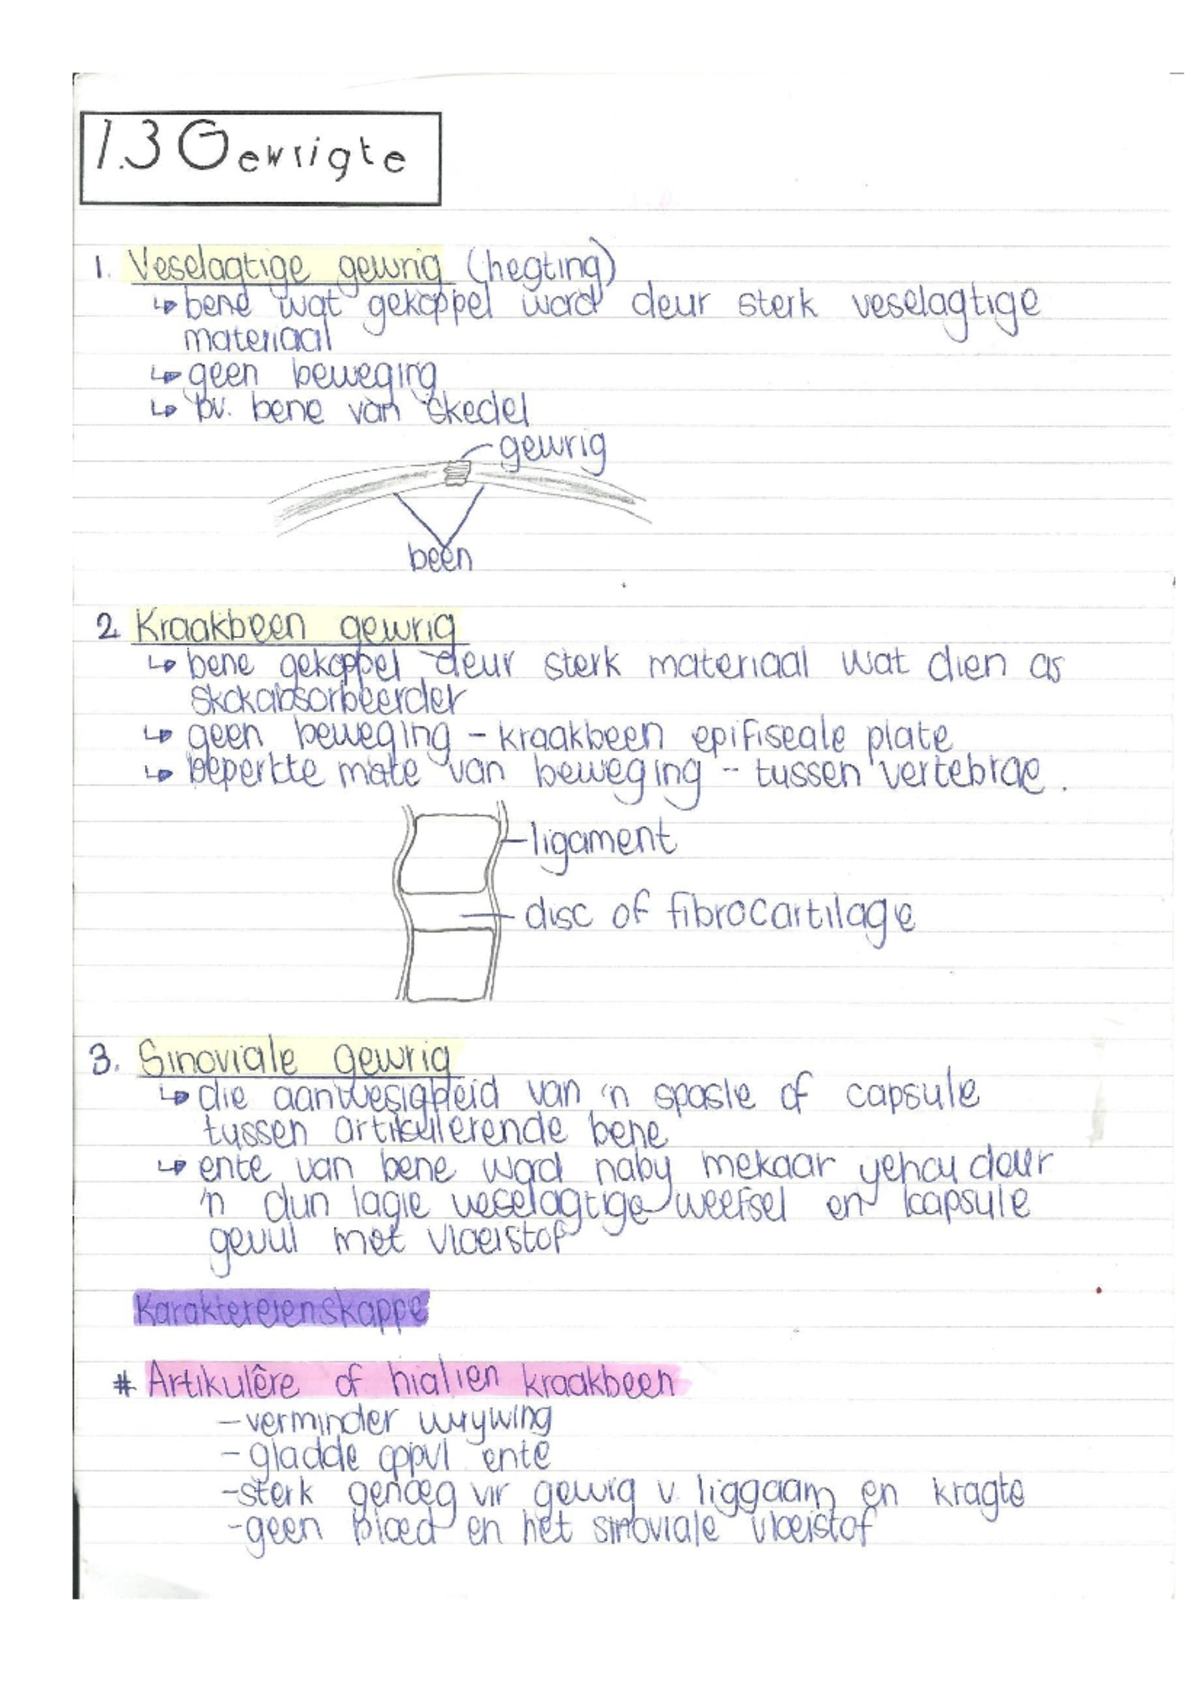 1.3 Gewrigte
1. Veselagtige gewrig (hegting)
↳ bene wat gekoppel word deur sterk veselagtige
materiaal
↳ geen beweging
↳ bv. bene van skedel
gewrig
been
2. Kraakbeen gewrig
↳ bene gekoppel deur sterk materiaal wat dien as
skokabsorbeerder
↳ geen beweging – kraakbeen epifiseale plate
↳ beperkte mate van beweging – tussen vertebrae.
ligament
disc of fibrocartilage
3. Sinoviale gewrig
↳ die aanwesigheid van 'n spasie of capsule
tussen artikulerende bene
↳ ente van bene word naby mekaar gehou deur
'n dun lagie veselagtige weefsel en kapsule
gevul met vloeistof
Karaktereienskappe
# Artikulêre of hialien kraakbeen
– verminder wrywing
– gladde oppvl ente
– sterk genoeg vir gewig v. liggaam en kragte
– geen bloed en het sinoviale vloeistof